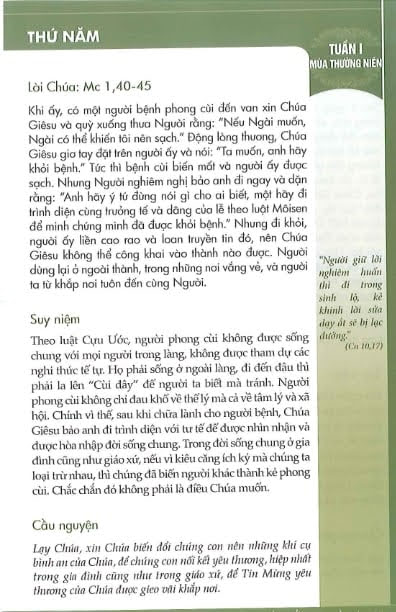 THỨ NĂM
TUẦN I
MÙA THƯỜNG NIÊN
Lời Chúa: Mc 1,40-45
Khi ấy, có một người bệnh phong cùi đến van xin Chúa
Giêsu và quỳ xuống thưa Người rằng: "Nếu Ngài muốn,
Ngài có thể khiến tôi nên sạch." Động lòng thương, Chúa
Giêsu giơ tay đặt trên người ấy và nói: "Ta muốn, anh hãy
khỏi bệnh." Tức thì bệnh cùi biến mất và người ấy được
sạch. Nhưng Người nghiêm nghị bảo anh đi ngay và dặn
rằng: "Anh hãy ý tứ đừng nói gì cho ai biết, một hãy đi
trình diện cùng trưởng tế và dâng của lễ theo luật Môisen
để minh chứng mình đã được khỏi bệnh." Nhưng đi khỏi,
người ấy liền cao rao và loan truyền tin đó, nên Chúa
Giêsu không thể công khai vào thành nào được. Người
dừng lại ở ngoài thành, trong những nơi vắng vẻ, và người
ta từ khắp nơi tuôn đến cùng Người.
"Người giữ lời
nghiêm huấn
thì đi trong
sinh lộ, kẻ
khinh lời sửa
dạy ắt sẽ bị lạc
đường."
(Cn 10,17)
Suy niệm
Theo luật Cựu Ước, người phong cùi không được sống
chung với mọi người trong làng, không được tham dự các
nghi thức tế tự. Họ phải sống ở ngoài làng, đi đến đâu thì
phải la lên "Cùi đây" để người ta biết mà tránh. Người
phong cùi không chỉ đau khổ về thể lý mà cả về tâm lý và xã
hội. Chính vì thế, sau khi chữa lành cho người bệnh, Chúa
Giêsu bảo anh đi trình diện với tư tế để được nhìn nhận và
được hòa nhập đời sống chung. Trong đời sống chung ở gia
đình cũng như giáo xứ, nếu vì kiêu căng ích kỷ mà chúng ta
loại trừ nhau, thì chúng đã biến người khác thành kẻ phong
cùi. Chắc chắn đó không phải là điều Chúa muốn.
Cầu nguyện
Lạy Chúa, xin Chúa biến đổi chúng con nên những khí cụ
bình an của Chúa, để chúng con nối kết yêu thương, hiệp nhất
trong gia đình cũng như trong giáo xứ, để Tin Mừng yêu
thương của Chúa được gieo vãi khắp nơi.